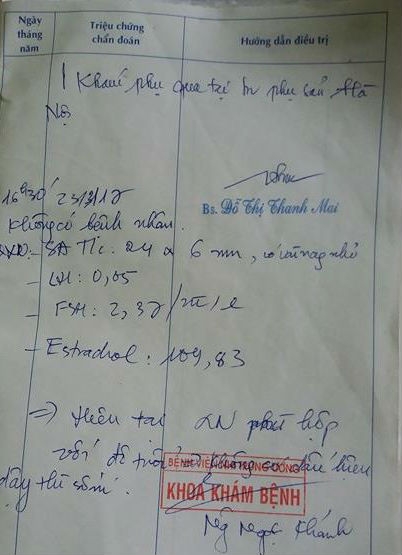 Ngày tháng năm
Triệu chứng chẩn đoán
Hướng dẫn điều trị
Khám phụ qua tại BV phụ sản Hà
Nội
Bs. Đỗ Thị Thanh Mai
16h30 23/
Không có bệnh nhân.
SA TC: 24 x 6 mm, có vài nang nhỏ
- LH: 0,05
- FSH: 2,37
- Estradiol: 109,83
=> Hiện tại XN phù hợp
với độ tuổi, không có dấu hiệu
dậy thì sớm.
BỆNH VIỆN NHI TRUNG ƯƠNG
KHOA KHÁM BỆNH
Ng Ngọc Khánh